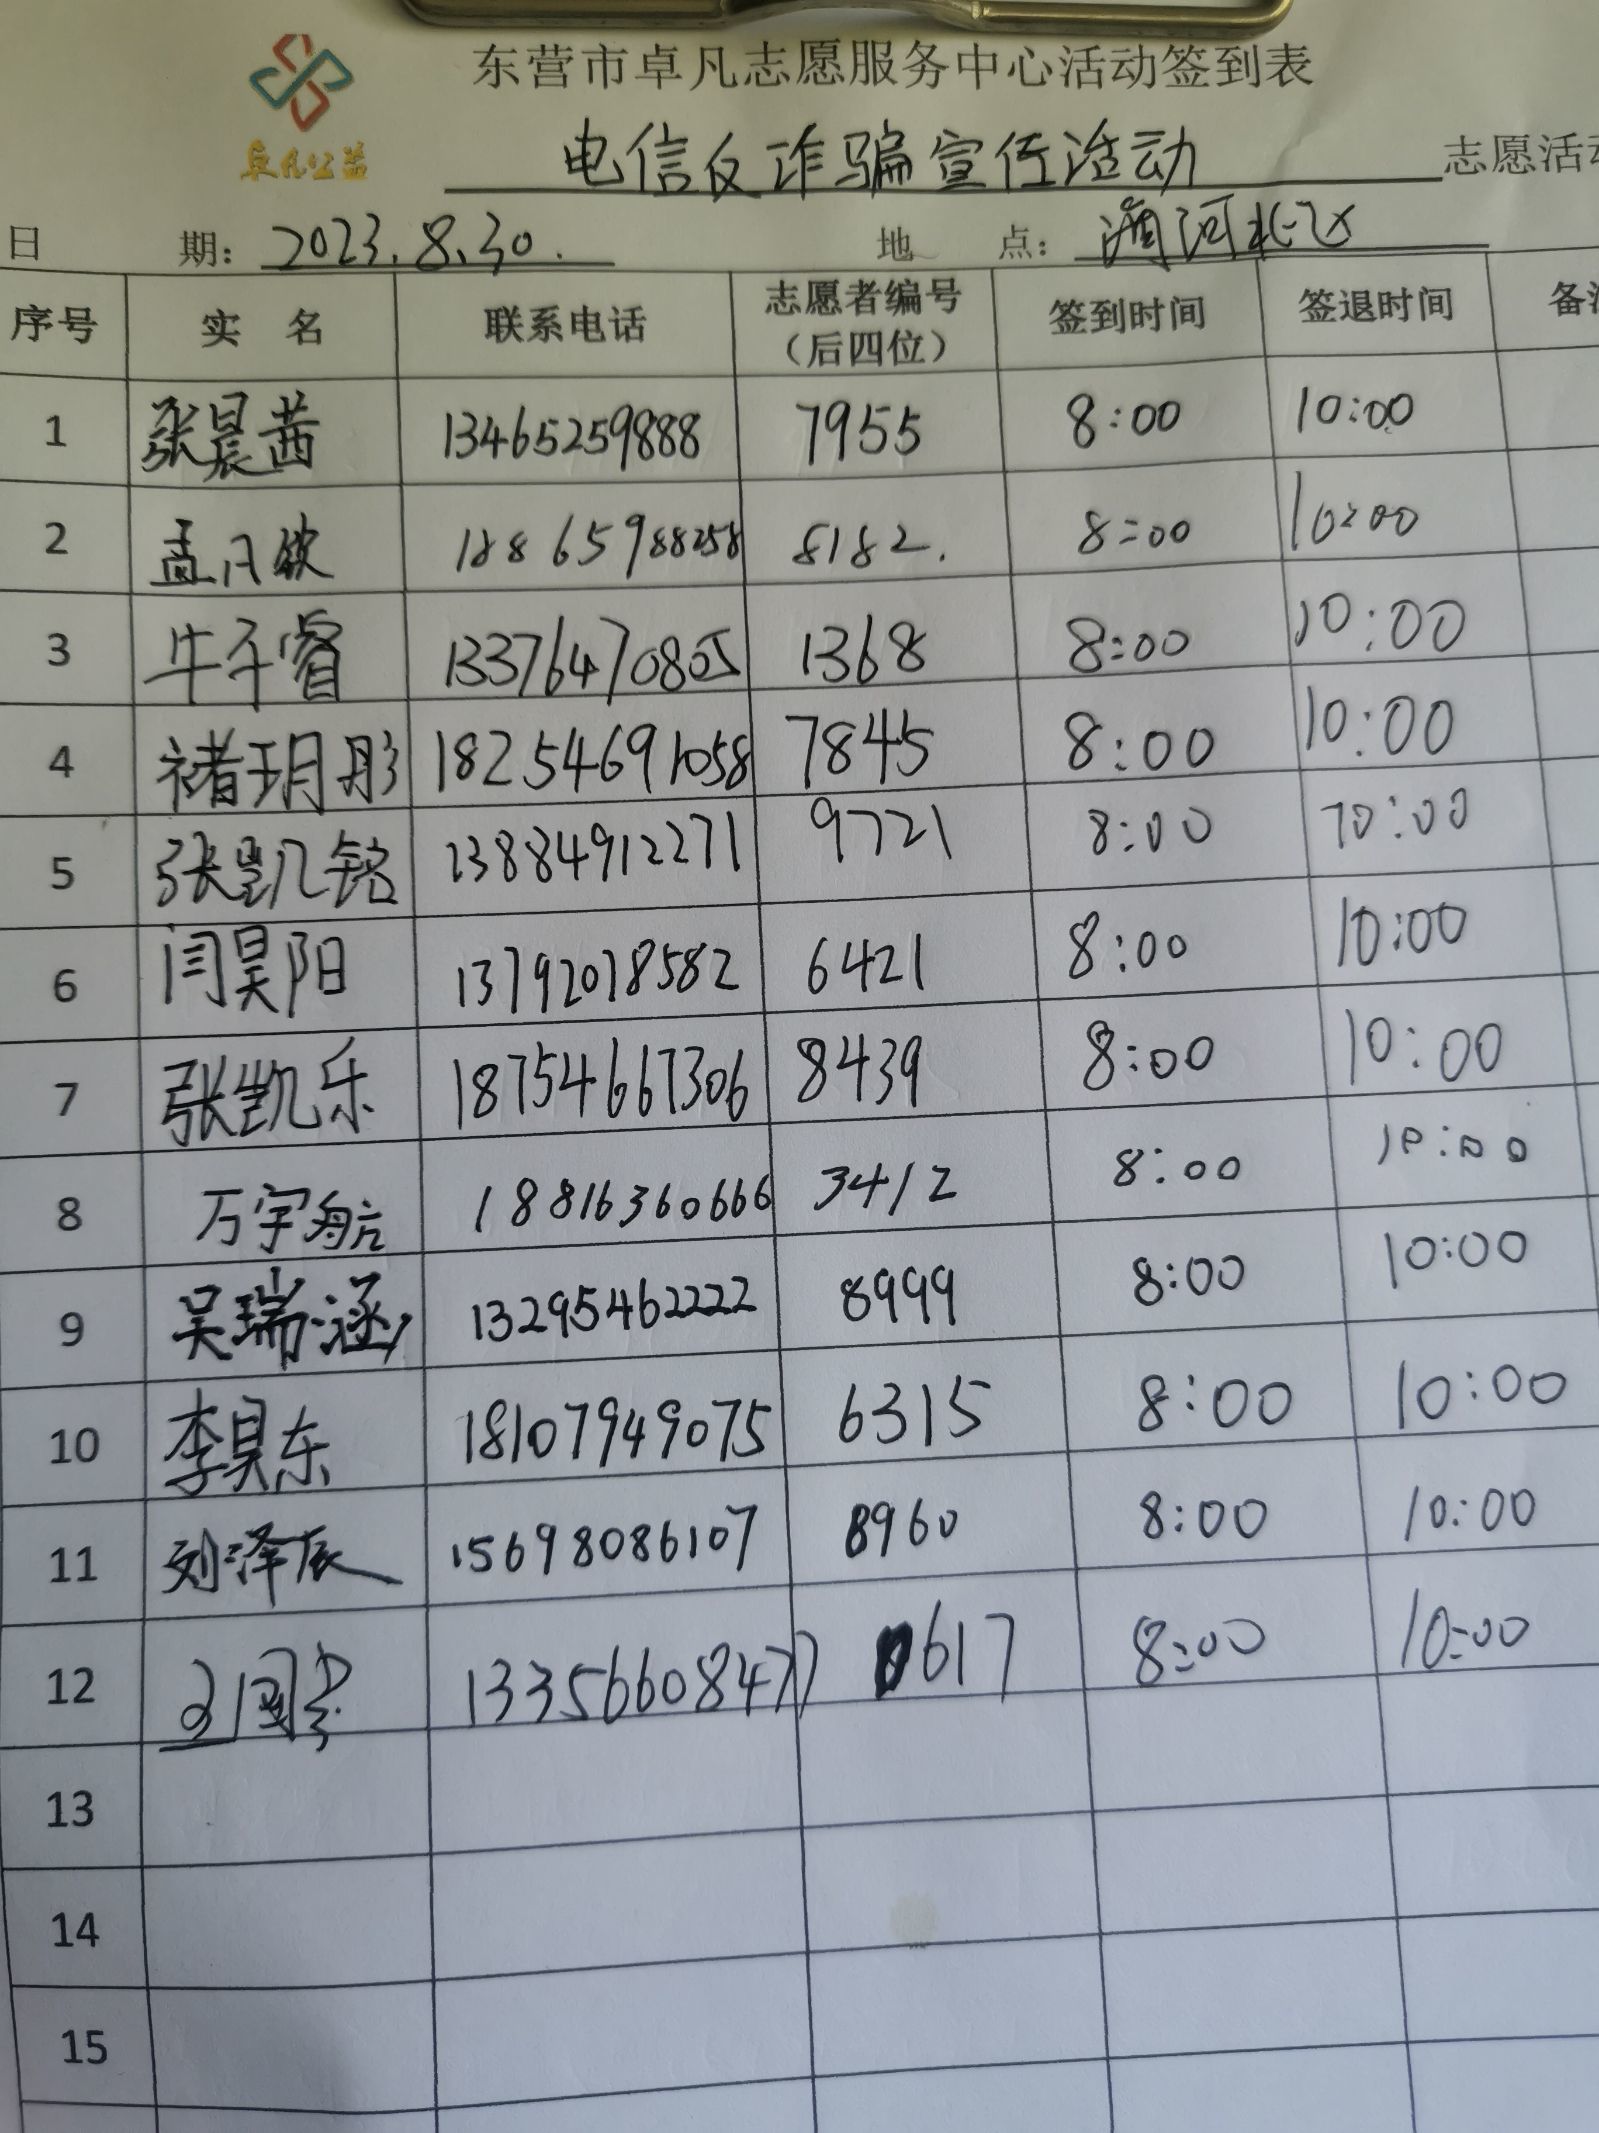 东营市卓凡志愿服务中心活动签到表
卓凡公益
电信反诈骗宣传活动 志愿活动
日 期: 2023.8.30. 地 点: 河北区
序号 实 名 联系电话 志愿者编号(后四位) 签到时间 签退时间 备注
1 张晨茜 13465259888 7955 8:00 10:00
2 孟 18865988258 8182. 8:00 10:00
3 牛子睿 13376470805 1368 8:00 10:00
4 褚玥彤 18254691058 7845 8:00 10:00
5 张凯铭 13884912271 9721 8:00 10:00
6 闫昊阳 13792078582 6421 8:00 10:00
7 张凯乐 18754667306 8439 8:00 10:00
8 万宇航 18816360666 3412 8:00 10:00
9 吴瑞涵 13295462222 8999 8:00 10:00
10 李昊东 18107949075 6315 8:00 10:00
11 刘泽辰 15698086107 8960 8:00 10:00
12 13356608477 0617 8:00 10:00
13
14
15